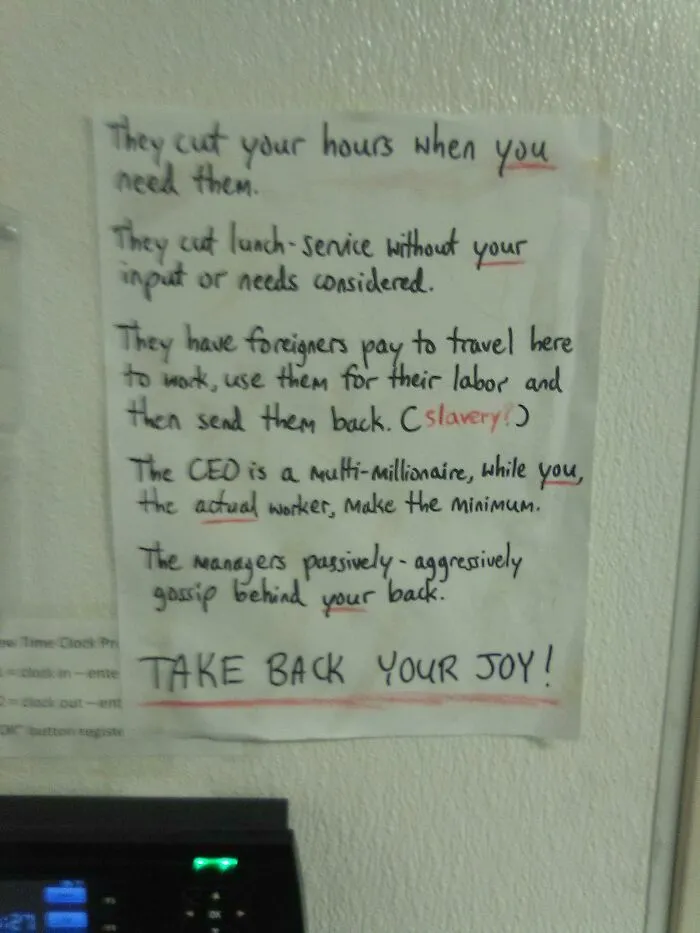 They cut your hours when you
need them.
They cut lunch-service without your
input or needs considered.
They have foreigners pay to travel here
to work, use them for their labor and
then send them back. (slavery?)
The CEO is a multi-millionaire, while you,
the actual worker, make the minimum.
The managers passively-aggressively
gossip behind your back.
TAKE BACK YOUR JOY!
Time Clock
= clock in —
2 = clock out —
"OK" button
OK
:27